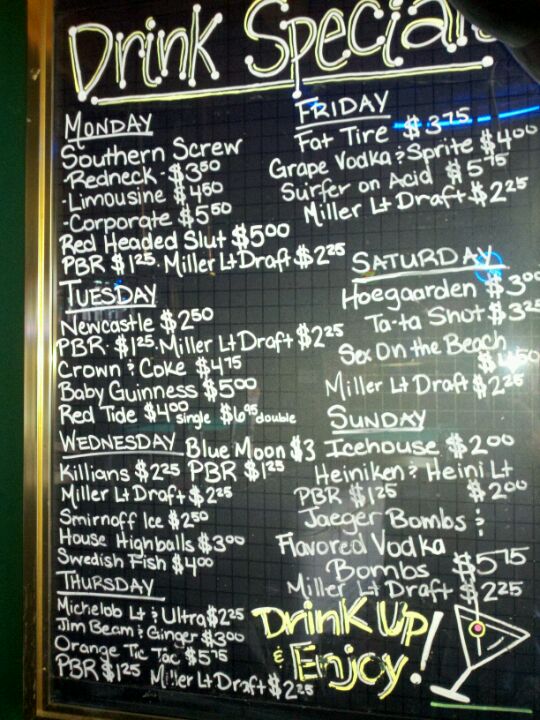 Drink Specials
MONDAY
Southern Screw
-Redneck - $3.50
-Limousine $4.50
-Corporate $5.50
Red Headed Slut $5.00
PBR $1.25 • Miller Lt Draft $2.25
TUESDAY
Newcastle $2.50
PBR • $1.25 • Miller Lt Draft $2.25
Crown & Coke $4.75
Baby Guinness $5.00
Red Tide $4.00 single $6.95 double
WEDNESDAY Blue Moon $3
Killians $2.25 PBR $1.25
Miller Lt Draft $2.25
Smirnoff Ice $2.50
House Highballs $3.00
Swedish Fish $4.00
THURSDAY
Michelob Lt & Ultra $2.25
Jim Beam & Ginger $3.00
Orange Tic Tac $5.75
PBR $1.25 Miller Lt Draft $2.25
FRIDAY
Fat Tire $3.75
Grape Vodka & Sprite $4.00
Surfer on Acid $5.75
Miller Lt Draft $2.25
SATURDAY
Hoegaarden $3.00
Ta-ta Shot $3.25
Sex On the Beach
$4.50
Miller Lt Draft $2.25
SUNDAY
Icehouse $2.00
Heiniken & Heini Lt
PBR $1.25 $2.00
Jaeger Bombs &
Flavored Vodka
Bombs $5.75
Miller Lt Draft $2.25
Drink Up
& Enjoy!